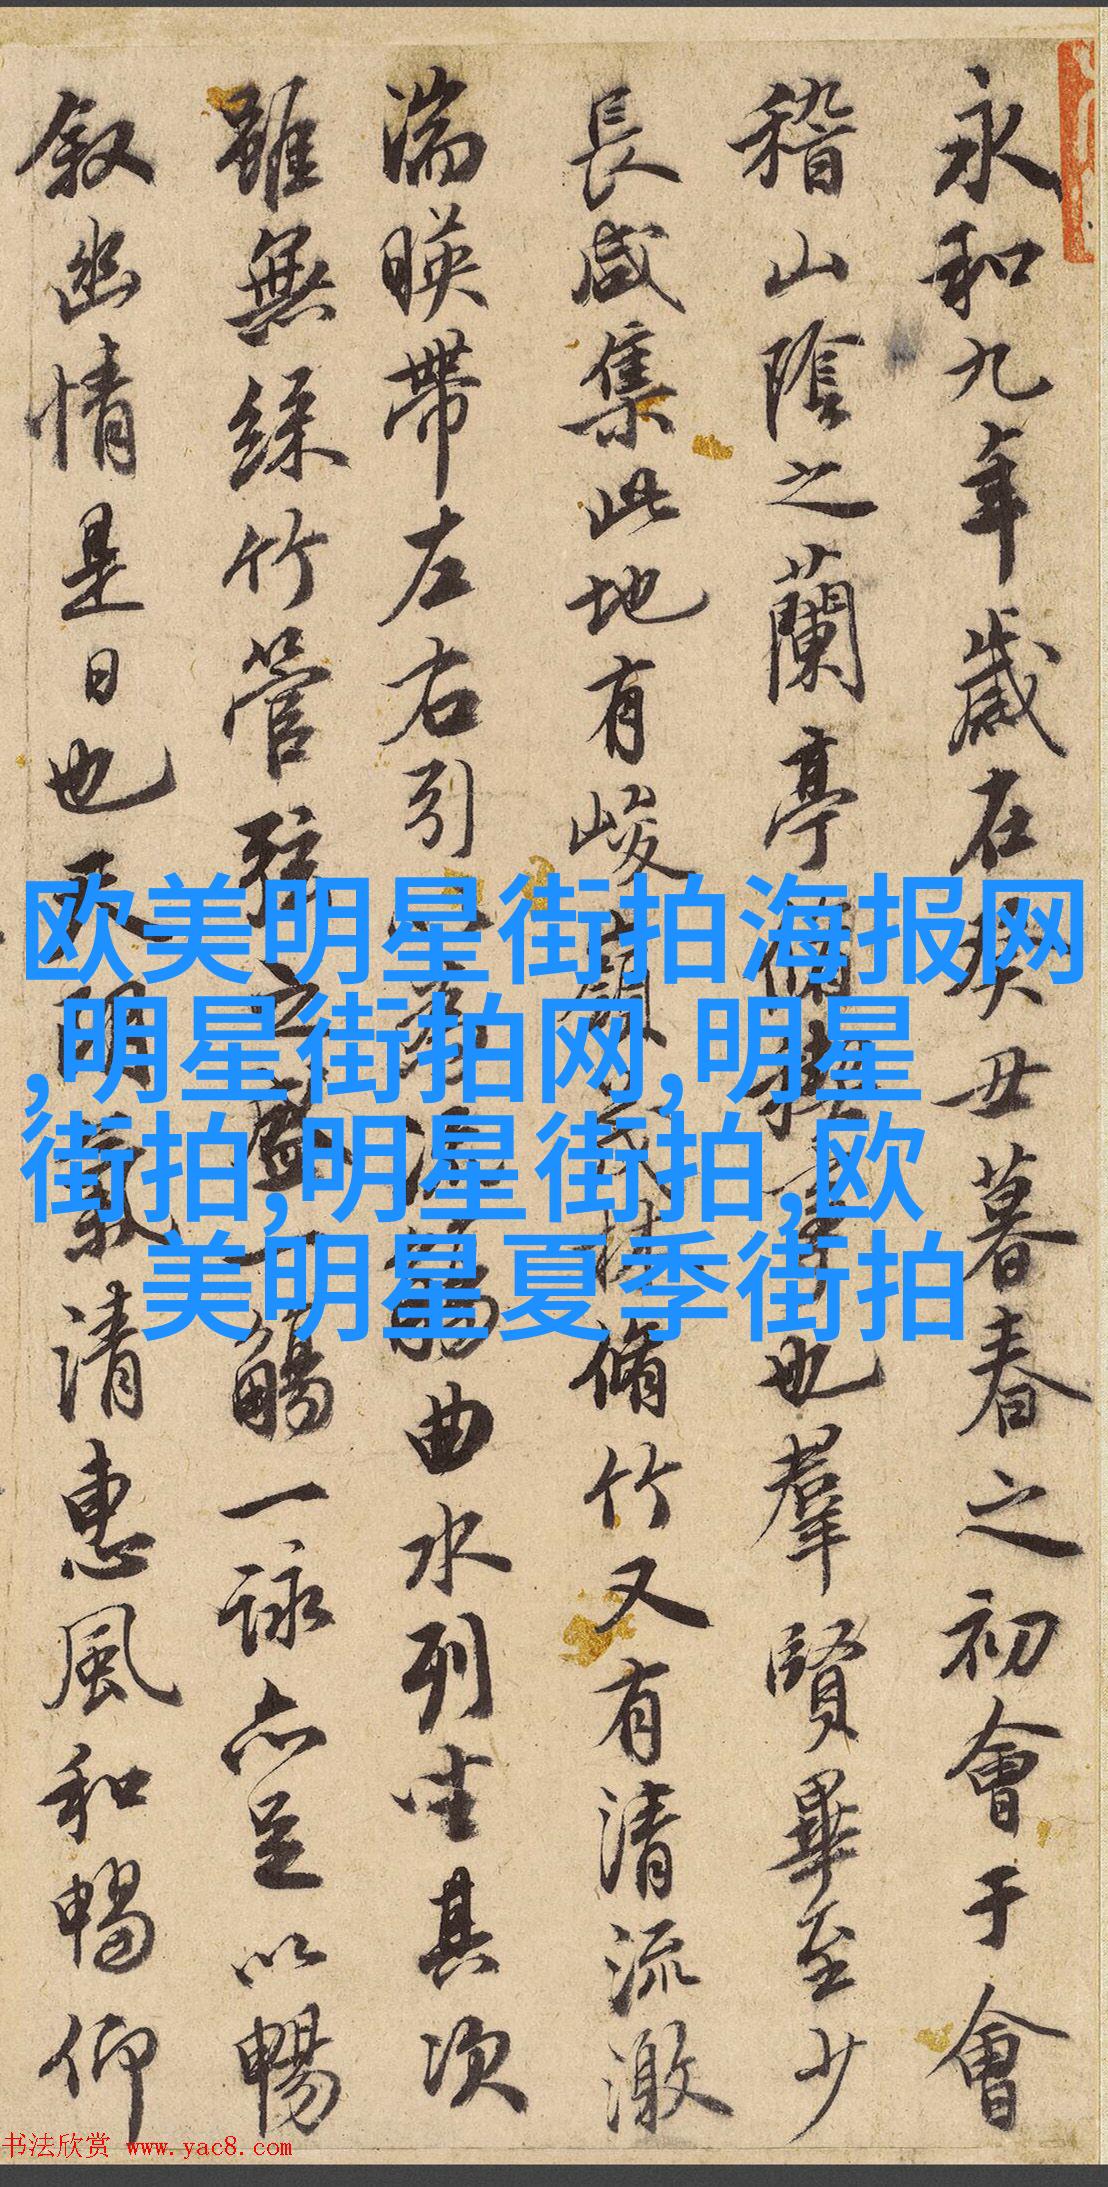 永和九年歲在癸丑暮春之初會于會
稽山陰之蘭亭脩稧事也羣賢畢至少
長咸集此地有峻領茂林脩竹又有清流激
湍暎帶左右引以為流觴曲水列坐其次
雖無絲竹管弦之盛一觴一詠亦足以暢
叙幽情是日也天朗氣清惠風和暢仰
欧美明星街拍海报网
,明星街拍网,明星
街拍,明星街拍,欧
美明星夏季街拍
书法欣赏 www.yac8.com